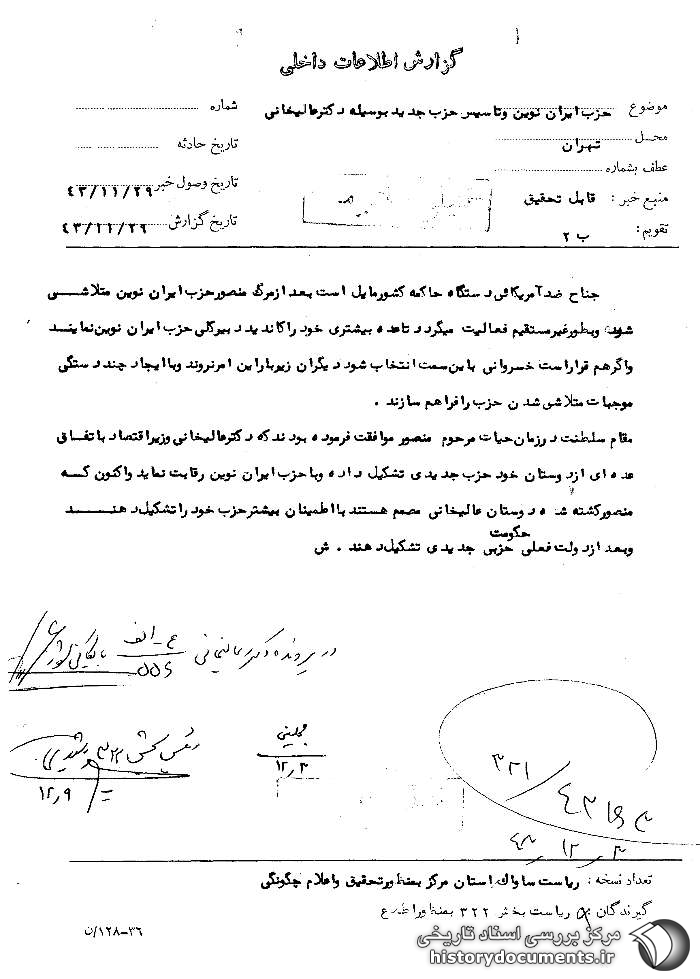 گزارش اطلاعات داخلی
موضوع حزب ایران نوین و تاسیس حزب جدید بوسیله دکتر عالیخانی
شماره
محل تهران
تاریخ حادثه
عطف بشماره
تاریخ وصول خبر ۴۳/۱۱/۲۹
منبع خبر: قابل تحقیق
تاریخ گزارش ۴۳/۱۱/۲۹
تقویم: ب ۲
جناح ضد آمریکائی دستگاه حاکمه کشور مایل است بعد از مرگ منصور حزب ایران نوین متلاشی
شود و بطور غیر مستقیم فعالیت میگردد تا عده بیشتری خود را کاندید دبیرکلی حزب ایران نوین نمایند
و اگر هم قرار است خسروانی باین سمت انتخاب شود دیگران زیر بار این امر نروند و با ایجاد چند دستگی
موجبات متلاشی شدن حزب را فراهم سازند .
مقام سلطنت در زمان حیات مرحوم منصور موافقت فرموده بودند که دکتر عالیخانی وزیر اقتصاد با تفاق
عده ای از دوستان خود حزب جدیدی تشکیل داده و با حزب ایران نوین رقابت نماید و اکنون که
منصور کشته شده دوستان عالیخانی مصمم هستند با اطمینان بیشتر حزب خود را تشکیل دهند
و بعد از دولت فعلی حکومت حزبی جدیدی تشکیل دهند . ش
در پرونده دکتر عالیخانی ع-الف بایگانی شود
۵۵۶
رئیس بخش ۳۲۲ رشیدی
۱۲٫۹
مجلسی
۱۲٫۳
۳۲۱/
تعداد نسخه : ریاست ساواک استان مرکز بمنظور تحقیق و اعلام چگونگی
گیرندگان ریاست بخش ۳۲۲ بمنظور اطلاع
۳۶-۱۲۸/ن
مرکز بررسی اسناد تاریخی
historydocuments.ir